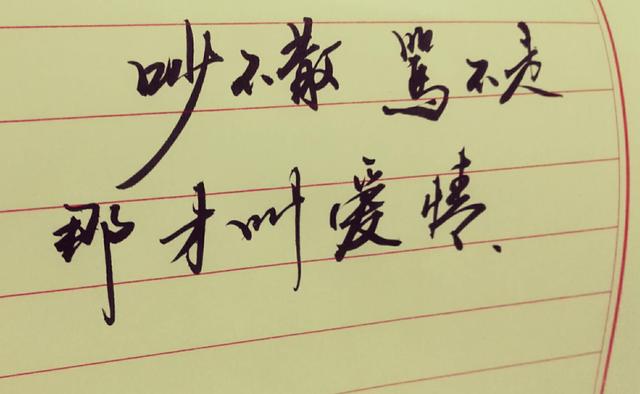 吵不散 骂不走
那才叫爱情、